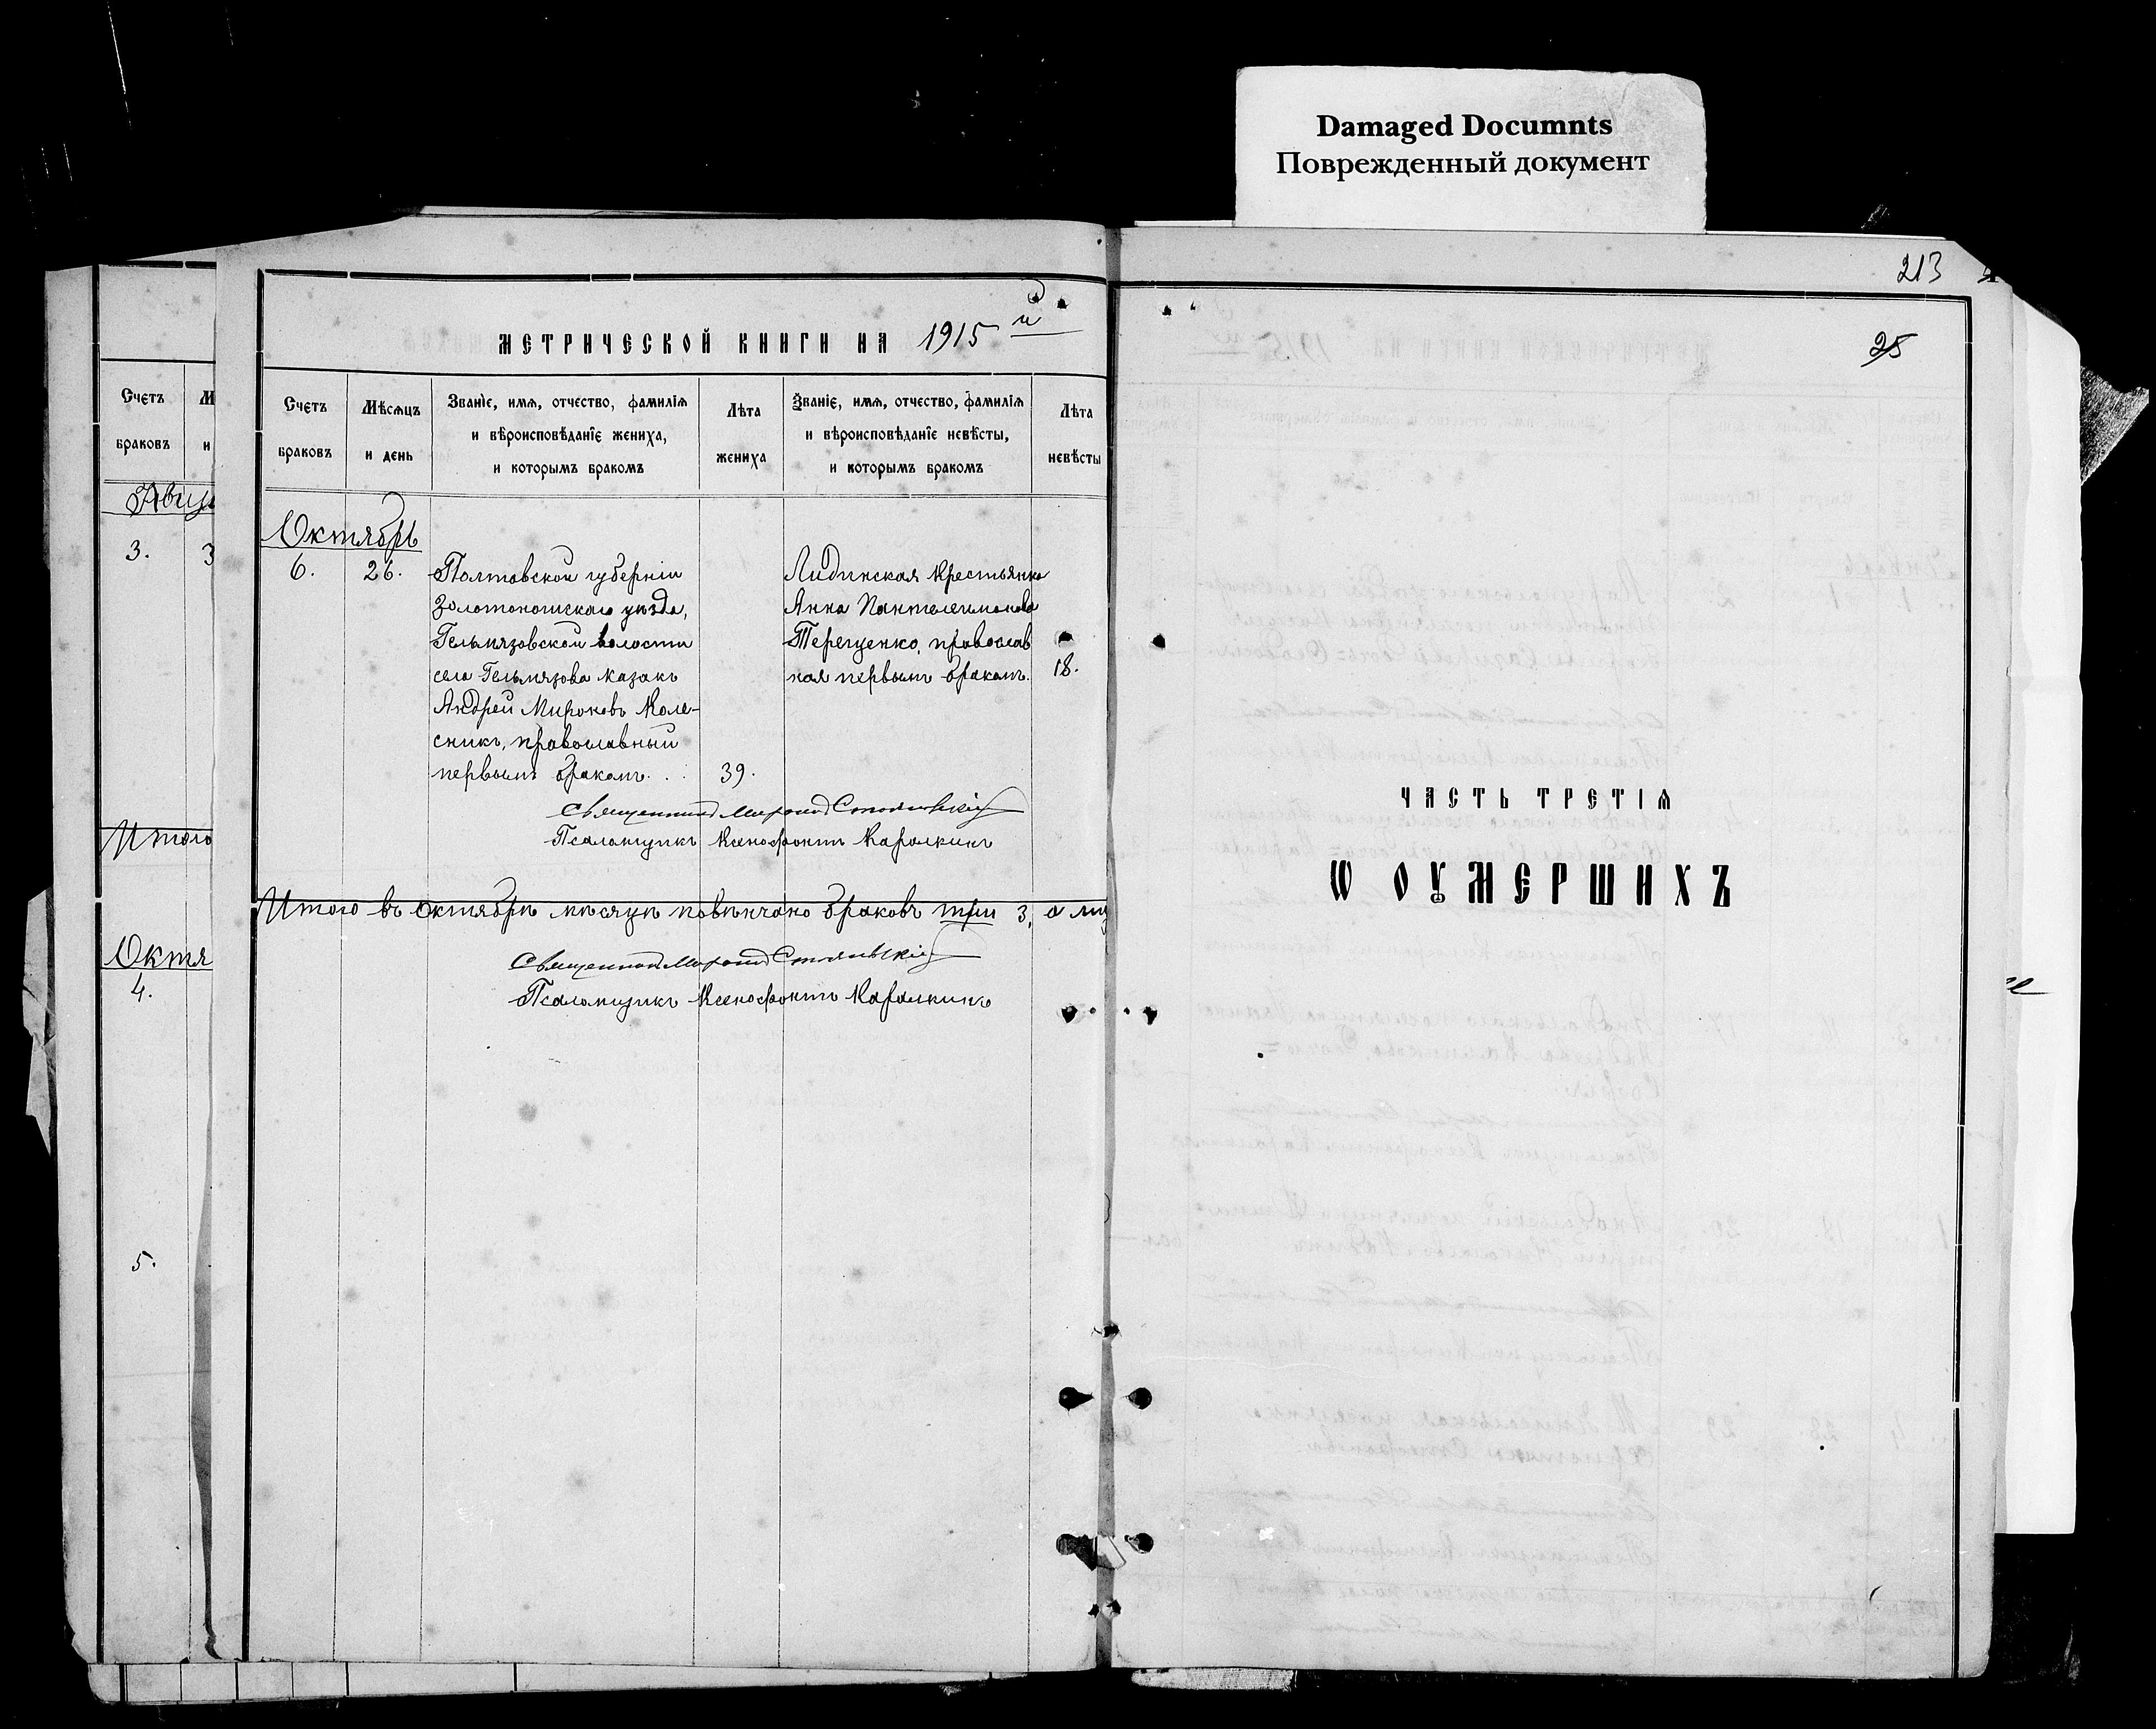 Damaged Documnts
Поврежденный документ
213
25
Счетъ
браковъ
3.
Итого
Октя
4.
5.
МЕТРИЧЕСКОЙ КНИГИ НА 1915 й
Счетъ браковъ
Мѣсяцъ и день
Званіе, имя, отчество, фамилія
и вѣроисповѣданіе жениха,
и которымъ бракомъ
Лѣта жениха
Званіе, имя, отчество, фамилія
и вѣроисповѣданіе невѣсты,
и которымъ бракомъ
Лѣта невѣсты
Октябрь
6. 26.
Полтавской губерніи
Золотоношскаго уѣзда,
Гельмязовской волости
села Гельмязова казакъ
Андрей Мироновъ Коле-
сникъ, православный
первымъ бракомъ. . .
39.
крестьянка
Анна Пантелеимонова
Терещенко, православ
ная первымъ бракомъ.
18.
Священникъ
Псаломщикъ Ксенофонтъ
Итого въ Октябрѣ мѣсяцѣ повѣнчано браковъ три 3, а
Священникъ
Псаломщикъ Ксенофонтъ
ЧАСТЬ ТРЕТІЯ
Ѡ ОУМЕРШИХЪ